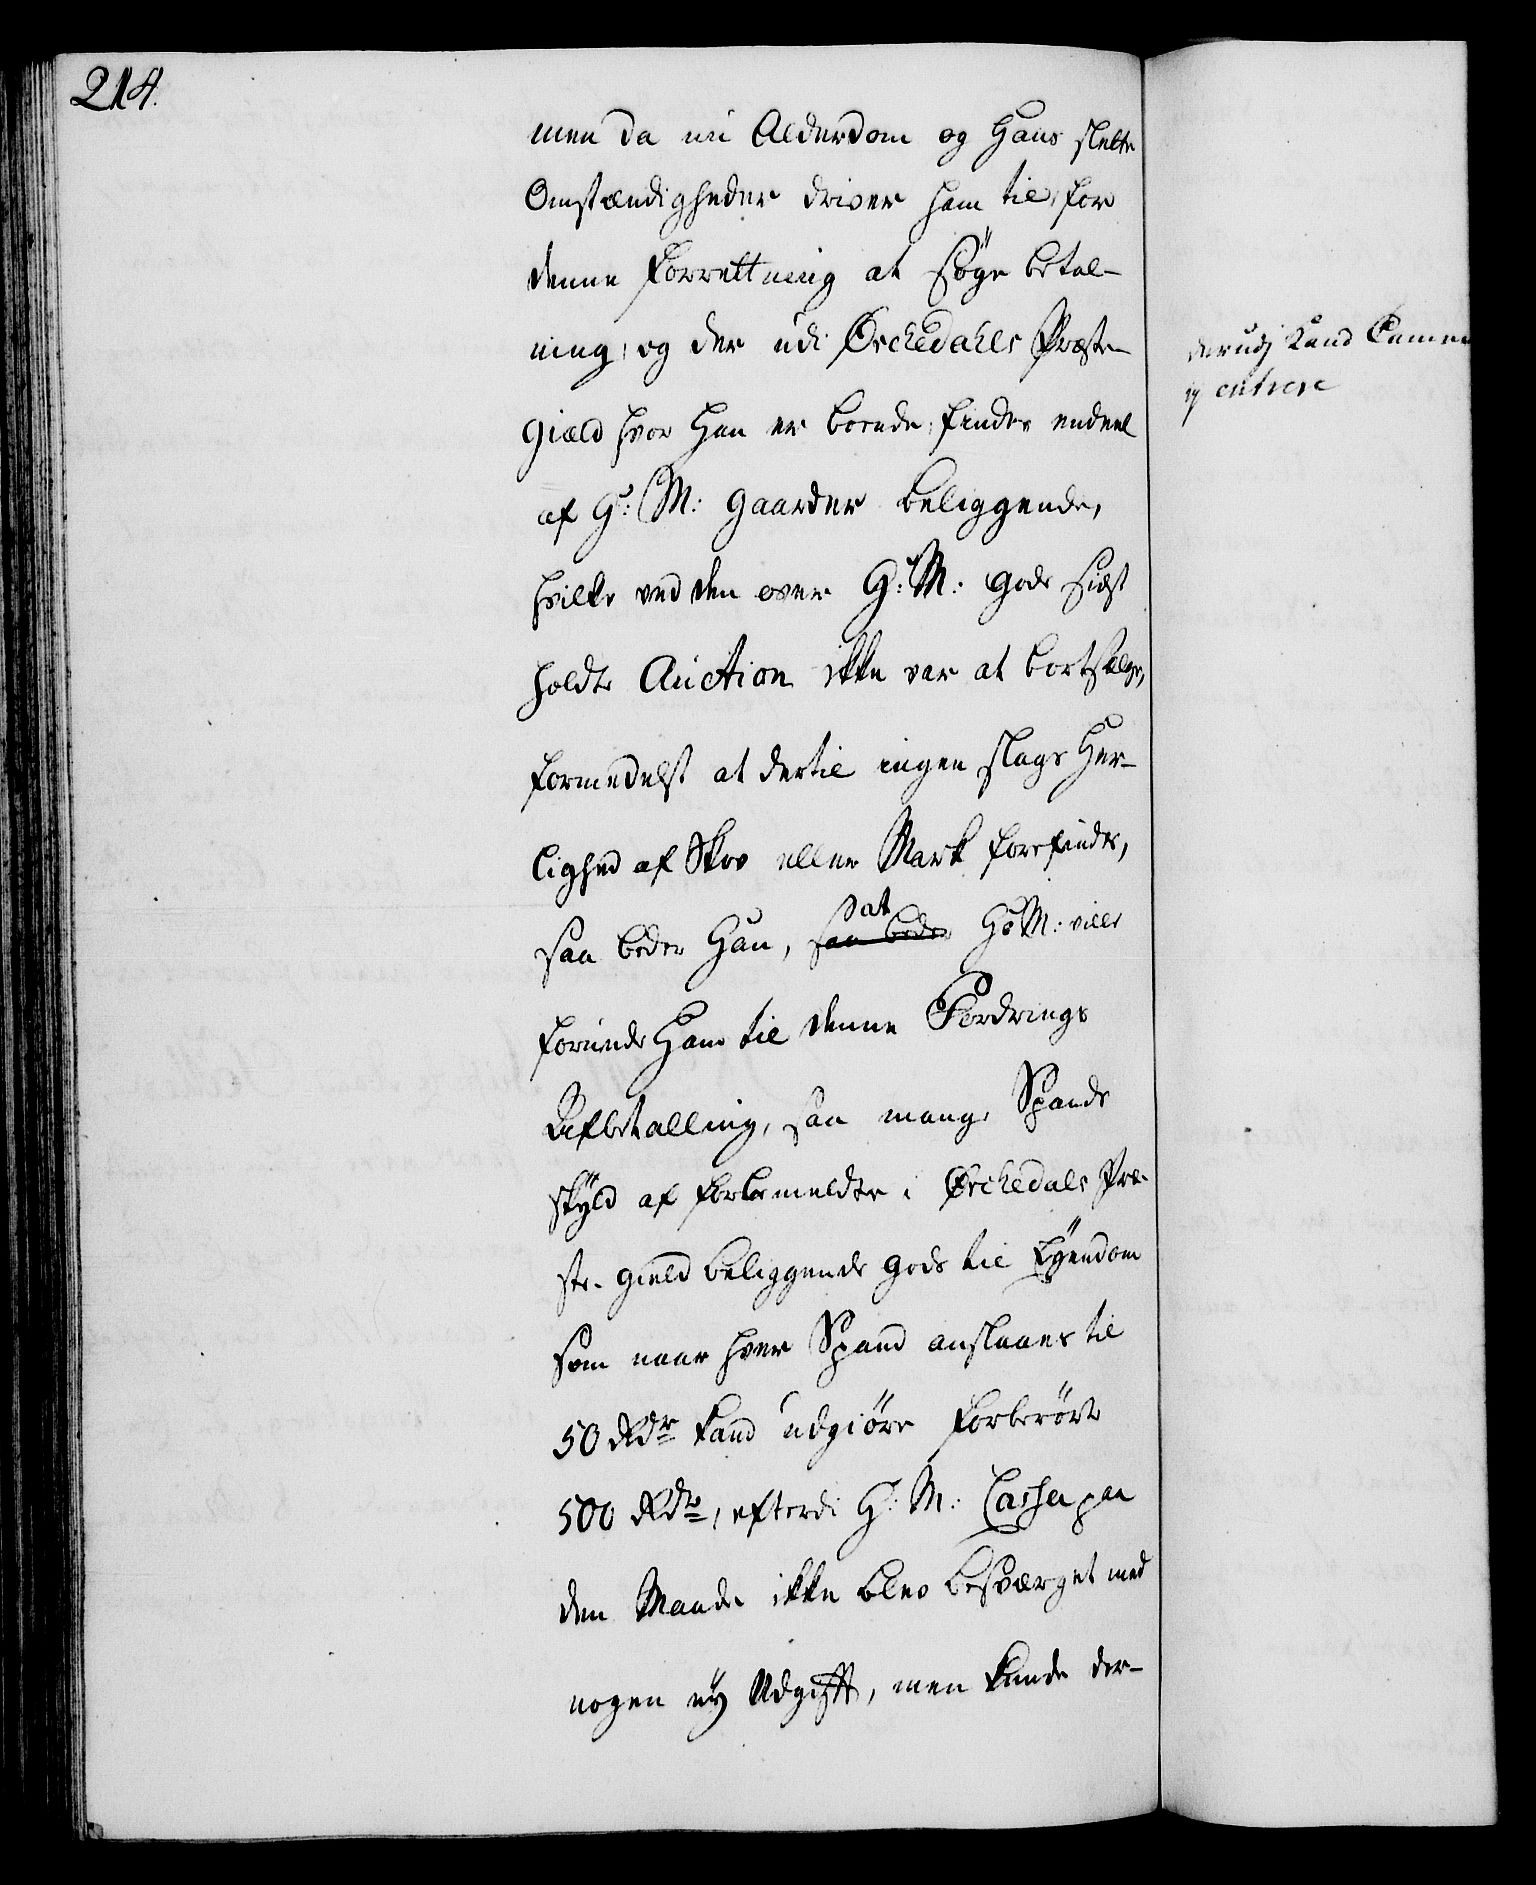 214.
men da nu Alderdom og Hans slette
Omstændigheder driver ham til, for
denne Forrettning at søge betal-
ning, og der udi Ørchedahls Præste-
Gield hvor Han er boende, findes endeel
af H: M: Gaarder beliggende,
hvilke ved den over H: M: Gods sidst
holdte Auction ikke var at bortsælge,
formedelst at dertil ingen slags Her-
lighed af Skov eller Mark forefindes,
saa beder Han, saa beder at H: M: ville
forunde Ham til denne Fordrings
Afbetalling, saa mange Spands
skyld af forbemeldte i Ørchedals Præ-
ste-gield beliggende Gods til Eyendom
som naar hver Spand anslaaes til
50 Rdr kand udgiøre forberørte
500 Rdr, efterdi H: M: Cassa paa
den Maade ikke blev besværget med
nogen ny Udgift, men kunde der-
derudj kand Camme
ey entrere